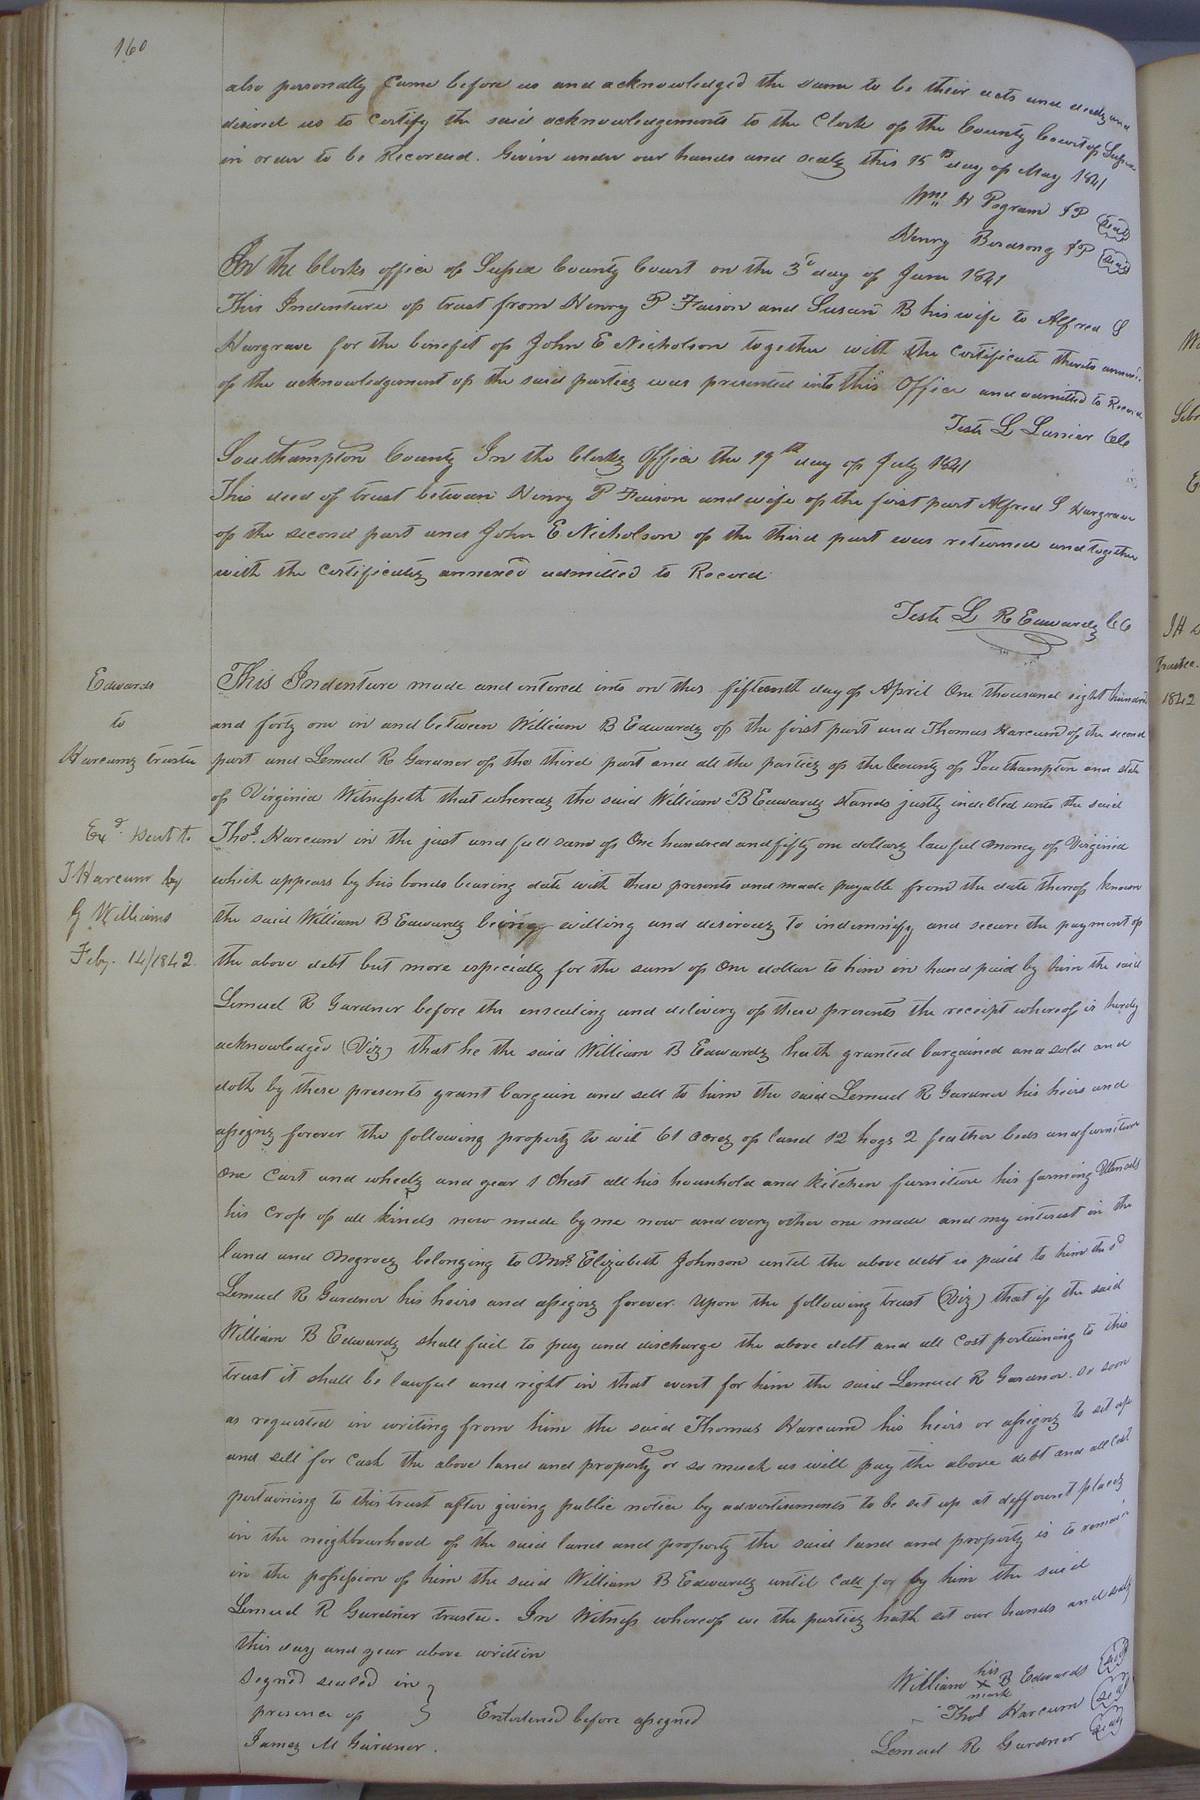 160
also personally Came before us and acknowledged the same to be their acts and deeds and
desired us to Certify the said acknowledgements to the Clerk of the County Court of Sussex
in order to be Recorded. Given under our hands and seals this 15th day of May 1841
Wm H Pegram JP Seal
Henry Birdsong JP Seal
In the Clerks office of Sussex County Court on the 3d day of June 1841
This Indenture of trust from Henry P Faison and Susan B his wife to Alfred S
Hargrave for the benefit of John E Nicholson together with the Certificate thereto annexed
of the acknowledgement of the said parties was presented into this Office and admitted to Record
Teste L Lanier CC
Southampton County In the Clerks Office the 19th day of July 1841
This deed of trust between Henry P Faison and wife of the first part Alfred S Hargrave
of the second part and John E Nicholson of the third part was returned and together
with the Certificates annexed admitted to Record
Teste L R Edwards CC
Edwards
to
Harcums trustee
Exd. Sent to
T Harcum by
G Williams
Feby. 14/1842
This Indenture made and entered into on this fifteenth day of April One thousand eight hundred
and forty one in and between William B Edwards of the first part and Thomas Harcum of the second
part and Lemuel R Gardner of the third part and all the parties of the County of Southampton and state
of Virginia Witnesseth that whereas the said William B Edwards stands justly indebted unto the said
Thos. Harcum in the just and full sum of One hundred and fifty one dollars lawful money of Virginia
which appears by his bonds bearing date with these presents and made payable from the date thereof known
the said William B Edwards being willing and desirous to indemnify and secure the payment of
the above debt but more especially for the sum of One dollar to him in hand paid by him the said
Lemuel R Gardner before the ensealing and delivery of these presents the receipt whereof is hereby
acknowledged (Viz) that he the said William B Edwards hath granted bargained and sold and
doth by these presents grant bargain and sell to him the said Lemuel R Gardner his heirs and
assigns forever the following property to wit 61 acres of land 12 hogs 2 feather beds and furniture
One Cart and wheels and gear 1 Chest all his household and Kitchen furniture his farming Utensils
his Crop of all kinds now made by me now and every other one made and my interest in the
land and Negroes belonging to Mrs. Elizabeth Johnson until the above debt is paid to him the sd
Lemuel R Gardner his heirs and assigns forever. Upon the following trust (Viz) that if the said
William B Edwards shall fail to pay and discharge the above debt and all Cost pertaining to this
trust it shall be lawful and right in that event for him the said Lemuel R Gardner so soon
as requested in writing from him the said Thomas Harcum his heirs or assigns to set up
and sell for Cash the above land and property or so much as will pay the above debt and all Cost
pertaining to this trust after giving public notice by advertisements to be set up at different places
in the neighbourhood of the said land and property the said land and property is to remain
in the possession of him the said William B Edwards until call for by him the said
Lemuel R Gardner trustee. In Witness whereof we the parties hath set our hands and seals
this day and year above written
Signed sealed in
presence of
James M Gardner.
Enterlined before assigned
William his X mark B Edwards Seal
Thos Harcum Seal
Lemuel R Gardner Seal
Trustee.
1842